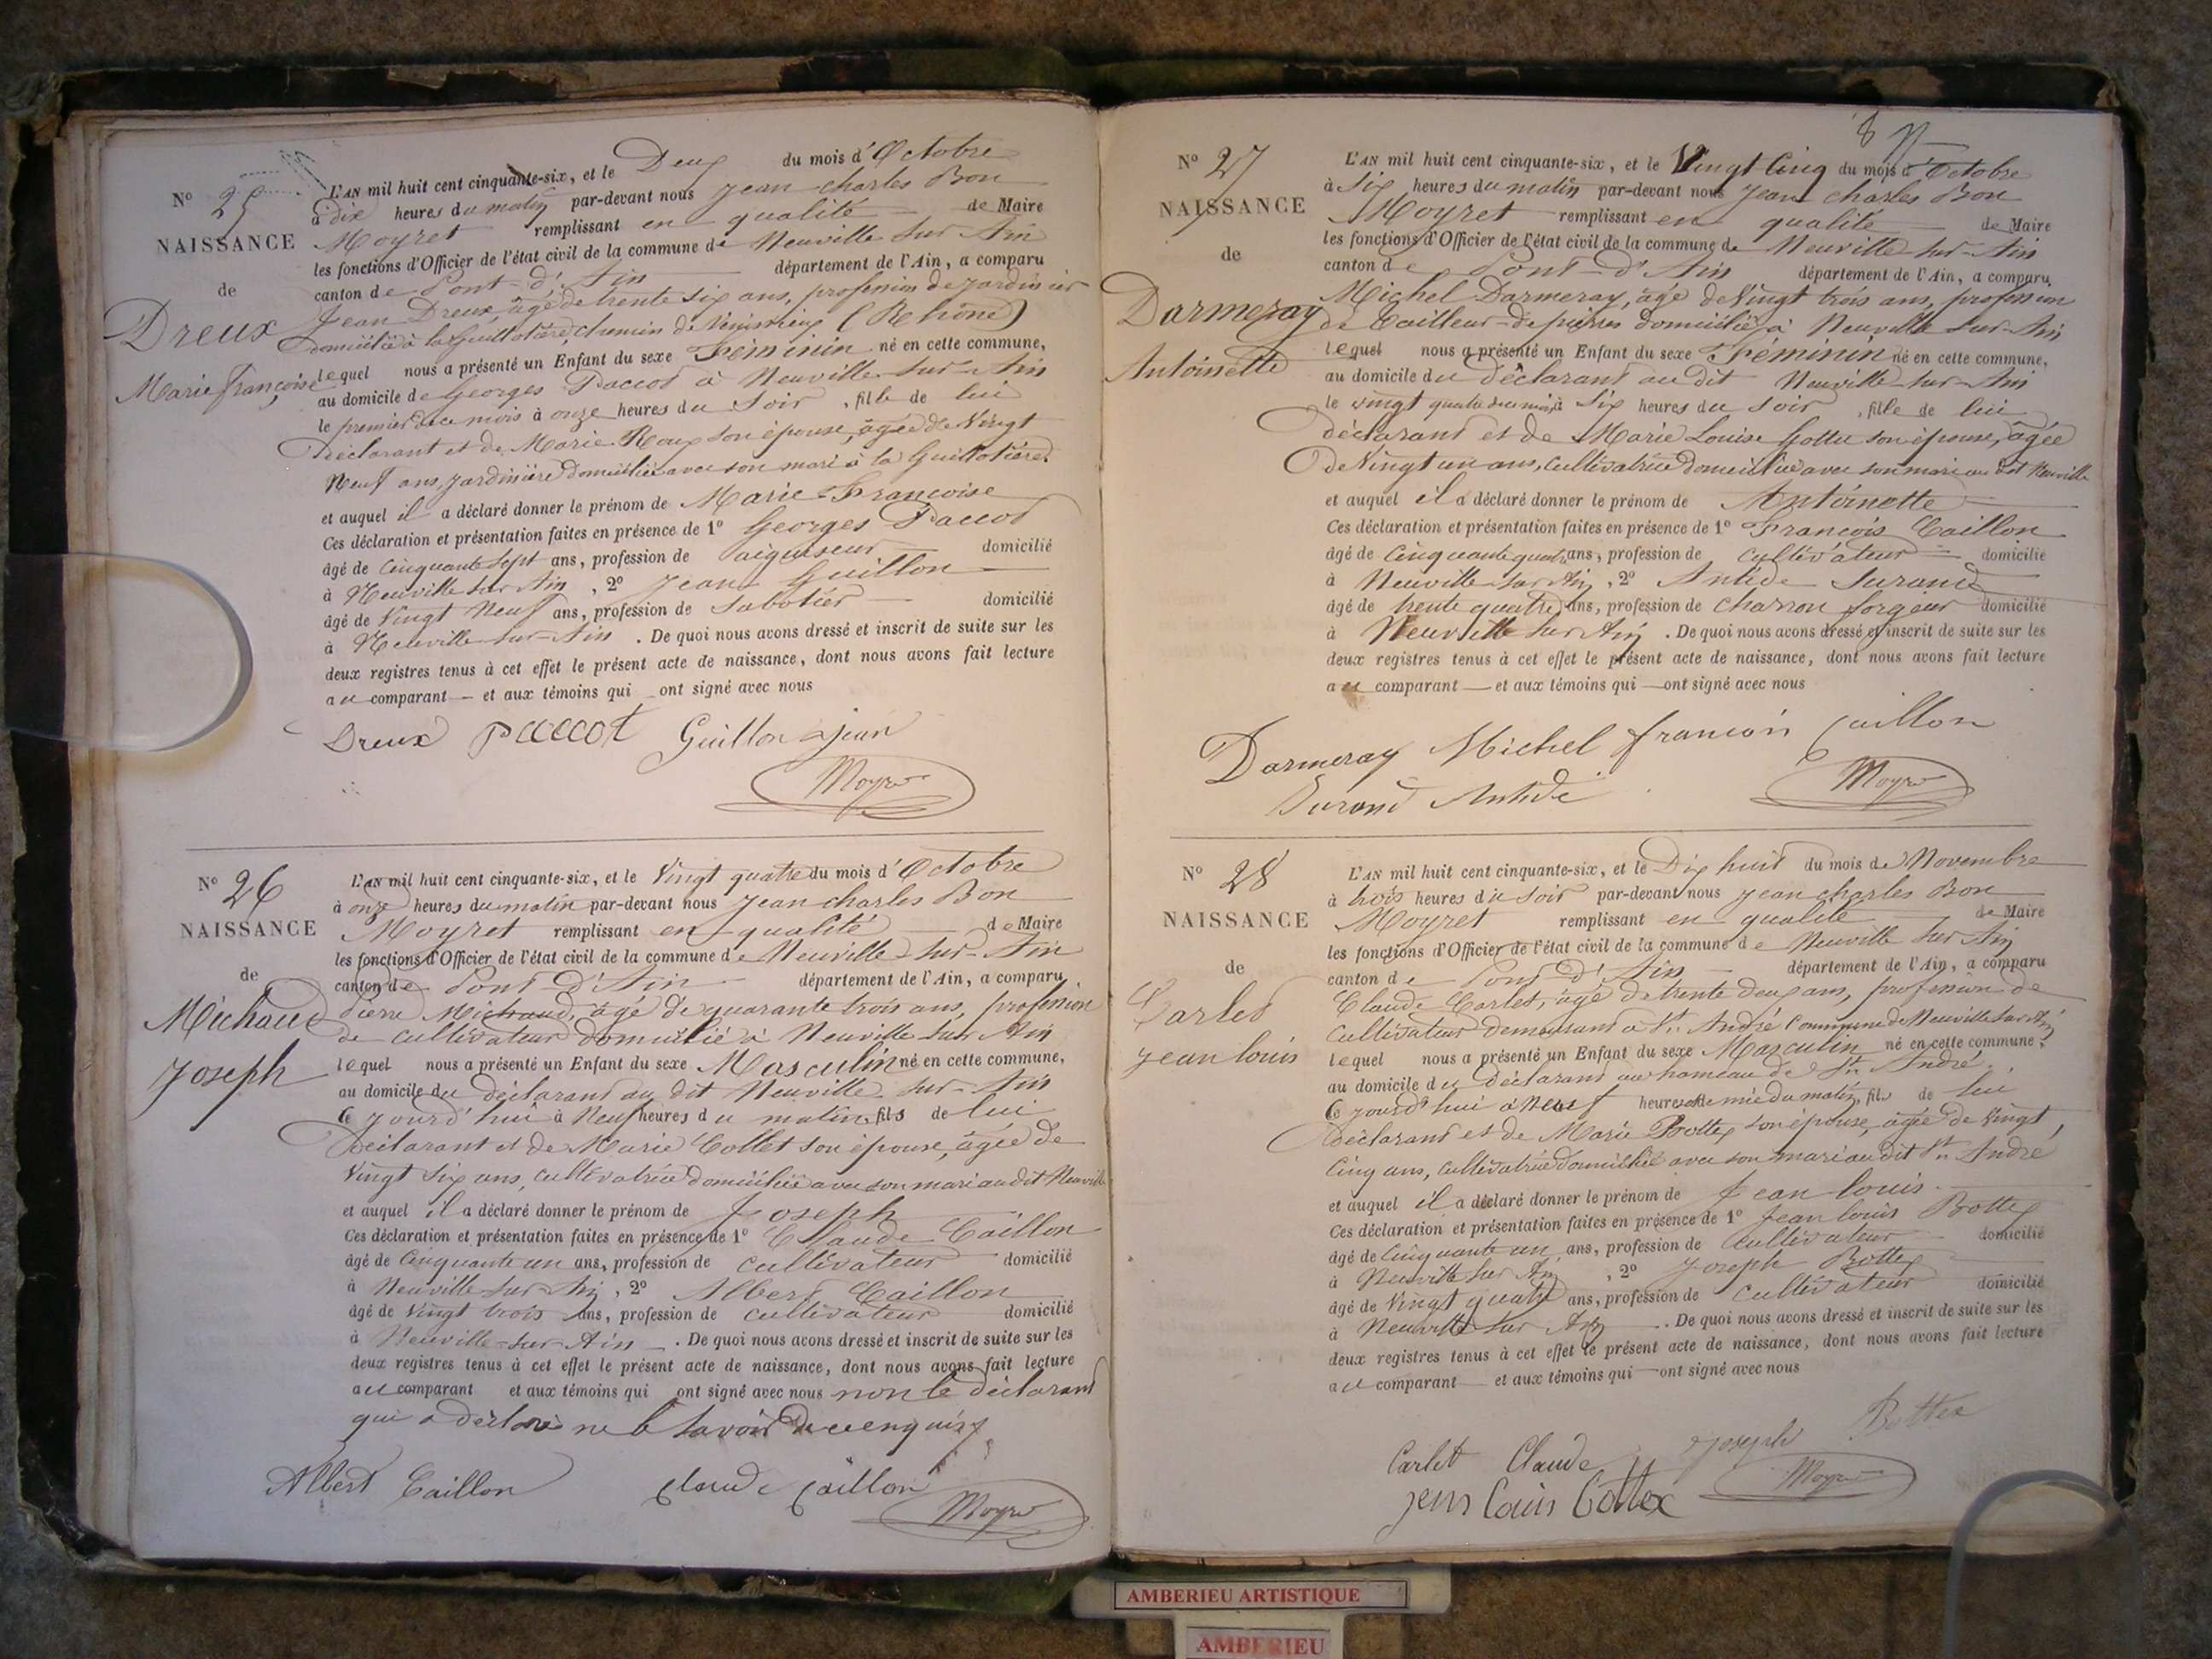 N° 25
NAISSANCE
de
Dreux
Marie françoise
L'AN mil huit cent cinquante-six, et le Deux du mois d'Octobre
à Dix heures du matin par-devant nous Jean Charles Bon
Moyret remplissant en qualité de Maire
les fonctions d'Officier de l'état civil de la commune de Neuville sur Ain
canton de Pont-d'Ain département de l'Ain, a comparu
Jean Dreux, âgé de trente six ans, profession de jardinier
domicilié à la Guillotière, chemin de (Rhône)
lequel nous a présenté un Enfant du sexe Féminin né en cette commune,
au domicile de Georges Paccot à Neuville sur Ain
le premier de ce mois à onze heures du Soir, fille de lui
Déclarant et de Marie Roux son épouse, âgée de Vingt
Neuf ans, jardinière domiciliée avec son mari à la Guillotière
et auquel il a déclaré donner le prénom de Marie-Françoise
Ces déclaration et présentation faites en présence de 1° Georges Paccot
âgé de Cinquante Sept ans, profession de aiguiseur domicilié
à Neuville sur Ain, 2° Jean Guillon
âgé de Vingt Neuf ans, profession de Sabotier domicilié
à Neuville sur Ain. De quoi nous avons dressé et inscrit de suite sur les
deux registres tenus à cet effet le présent acte de naissance, dont nous avons fait lecture
au comparant et aux témoins qui ont signé avec nous
Dreux Paccot Guillon jean
Moyret
N° 26
NAISSANCE
de
Michaud
Joseph
L'AN mil huit cent cinquante-six, et le Vingt quatre du mois d'Octobre
à onze heures du matin par-devant nous Jean Charles Bon
Moyret remplissant en qualité de Maire
les fonctions d'Officier de l'état civil de la commune de Neuville-sur-Ain
canton de Pont d'Ain département de l'Ain, a comparu
Pierre Michaud, âgé de quarante trois ans, profession
de cultivateur domicilié à Neuville sur Ain
lequel nous a présenté un Enfant du sexe Masculin né en cette commune,
au domicile du déclarant au dit Neuville sur-Ain
Ce jourd'hui à Neuf heures du matin, fils de lui
Déclarant et de Marie Collet son épouse, âgée de
Vingt Six ans, cultivatrice domiciliée avec son mari au dit Neuville
et auquel il a déclaré donner le prénom de Joseph
Ces déclaration et présentation faites en présence de 1° Claude Caillon
âgé de Cinquante un ans, profession de cultivateur domicilié
à Neuville sur Ain, 2° Albert Caillon
âgé de Vingt trois ans, profession de cultivateur domicilié
à Neuville-sur-Ain. De quoi nous avons dressé et inscrit de suite sur les
deux registres tenus à cet effet le présent acte de naissance, dont nous avons fait lecture
au comparant et aux témoins qui ont signé avec nous non le déclarant
qui a déclaré ne le savoir de ce enquis
Albert Caillon Claude Caillon
Moyret
8
N° 27
NAISSANCE
de
Darmeray
Antoinette
L'AN mil huit cent cinquante-six, et le Vingt Cinq du mois d'Octobre
à Six heures du matin par-devant nous Jean Charles Bon
Moyret remplissant en qualité de Maire
les fonctions d'Officier de l'état civil de la commune de Neuville sur-Ain
canton de Pont-d'Ain département de l'Ain, a comparu,
Michel Darmeray, âgé de Vingt trois ans, profession
de Tailleur-de-pierres domicilié à Neuville sur-Ain
lequel nous a présenté un Enfant du sexe Féminin né en cette commune,
au domicile du Déclarant au dit Neuville-sur-Ain
le vingt quatre du mois à Six heures du soir, fille de lui
déclarant et de Marie Louise Gottu son épouse, âgée
de Vingt un ans, cultivatrice domiciliée avec son mari au dit Neuville
et auquel il a déclaré donner le prénom de Antoinette
Ces déclaration et présentation faites en présence de 1° François Caillon
âgé de Cinquante quatre ans, profession de Cultivateur domicilié
à Neuville sur Ain, 2° Antide Durand
âgé de trente quatre ans, profession de Charron forgeur domicilié
à Neuville sur Ain. De quoi nous avons dressé et inscrit de suite sur les
deux registres tenus à cet effet le présent acte de naissance, dont nous avons fait lecture
au comparant et aux témoins qui ont signé avec nous
Darmeray Michel francois Caillon
Durand Antide Moyret
N° 28
NAISSANCE
de
Carlet
jean louis
L'AN mil huit cent cinquante-six, et le Dix huit du mois de Novembre
à trois heures du Soir par-devant nous Jean Charles Bon
Moyret remplissant en qualité de Maire
les fonctions d'Officier de l'état civil de la commune de Neuville sur Ain
canton de Pont d'Ain département de l'Ain, a comparu
Claude Carlet, âgé de trente deux ans, profession de
Cultivateur demeurant à St André Commune de Neuville sur Ain
lequel nous a présenté un Enfant du sexe Masculin né en cette commune,
au domicile du Déclarant au hameau de St André
Ce jourd'hui à Neuf heures et demie du matin, fils de lui
déclarant et de Marie Bottex son épouse, âgée de Vingt
Cinq ans, cultivatrice domiciliée avec son mari au dit St André
et auquel il a déclaré donner le prénom de Jean louis
Ces déclaration et présentation faites en présence de 1° Jean louis Bottex
âgé de Cinquante un ans, profession de Cultivateur domicilié
à Neuville sur Ain, 2° Joseph Bottex
âgé de Vingt quatre ans, profession de cultivateur domicilié
à Neuville sur Ain. De quoi nous avons dressé et inscrit de suite sur les
deux registres tenus à cet effet le présent acte de naissance, dont nous avons fait lecture
au comparant et aux témoins qui ont signé avec nous
Carlet Claude Joseph Bottex
jean Louis Bottex Moyret
AMBERIEU ARTISTIQUE
AMBERIEU